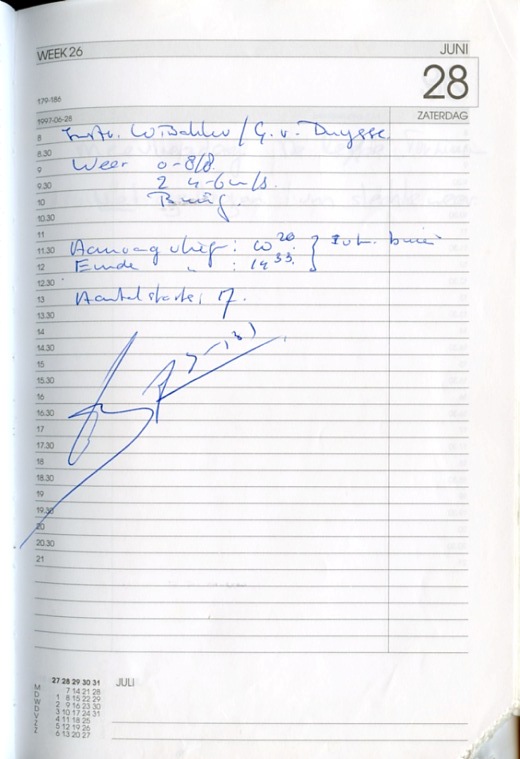 WEEK 26
JUNI
28
179-186
1997-06-28
ZATERDAG
8 Instr. / G. v. Duysse.
8.30
9 Weer 0-8/8.
9.30 2 4-6 m/s.
10
10.30
11
11.30 Aanvang vlieg: 10 20
12 Einde " : 14 33.
12.30
13 Aantal starts: 7.
13.30
14
14.30
15
15.30
16
16.30
17
17.30
18
18.30
19
19.30
20
20.30
21
27 28 29 30 31
JULI
M 7 14 21 28
D 1 8 15 22 29
W 2 9 16 23 30
D 3 10 17 24 31
V 4 11 18 25
Z 5 12 19 26
Z 6 13 20 27